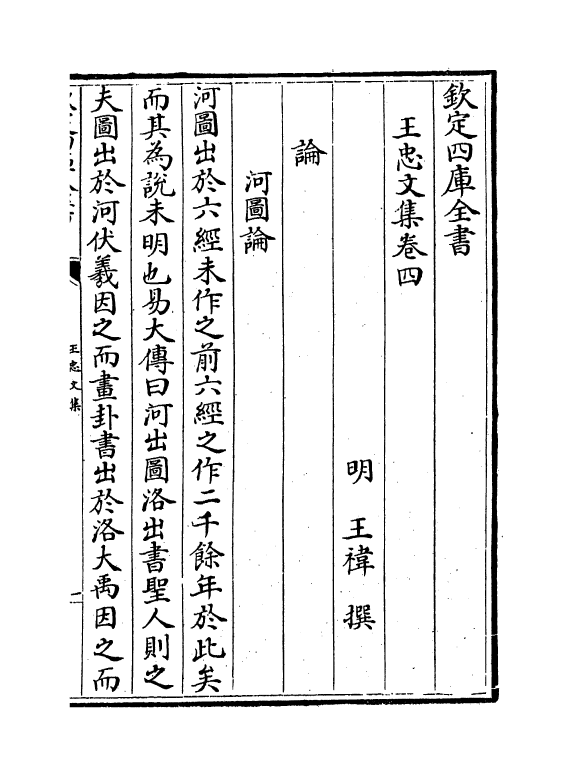 欽定四庫全書
王忠文集卷四
明 王禕 撰
論
河圖論
河圖出於六經未作之前六經之作二千餘年於此矣
而其為說未明也易大傳曰河出圖洛出書聖人則之
夫圖出於河伏羲因之而畫卦書出於洛大禹因之而
王忠文集
一